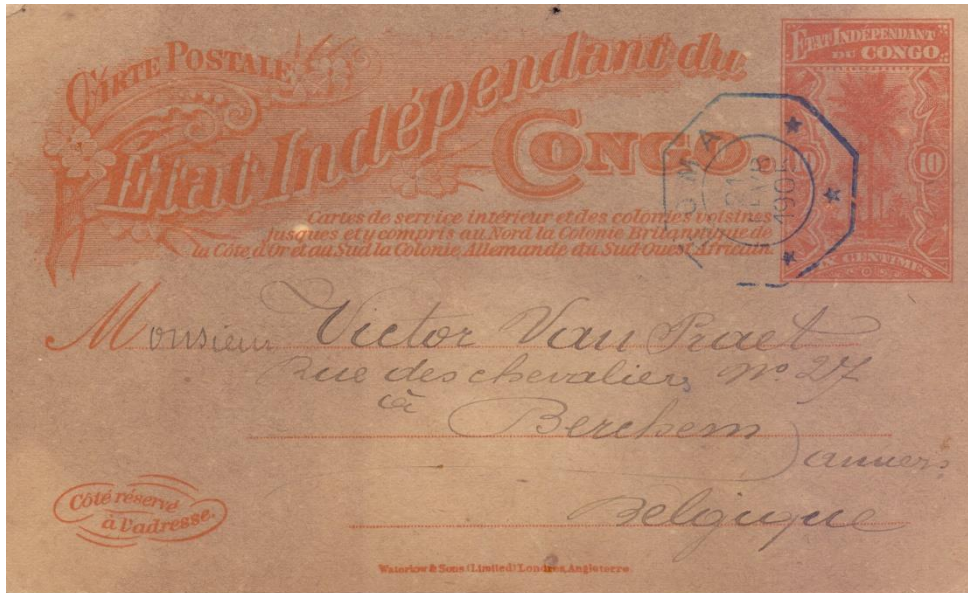 CARTE POSTALE
Etat Indépendant du
CONGO
Cartes de service intérieur et des colonies voisines
jusques et y compris au Nord la Colonie Britannique de
la Côte d'Or et au Sud la Colonie Allemande du Sud-Ouest Africain.
ETAT INDÉPENDANT
DU CONGO
10
10
DIX CENTIMES
BOMA
21
1905
Monsieur Victor Van Praet
Rue des chevaliers, No 27
à
Berchem
anvers
Belgique
Côté réservé
à l'adresse.
Waterlow & Sons (Limited) Londres, Angleterre.